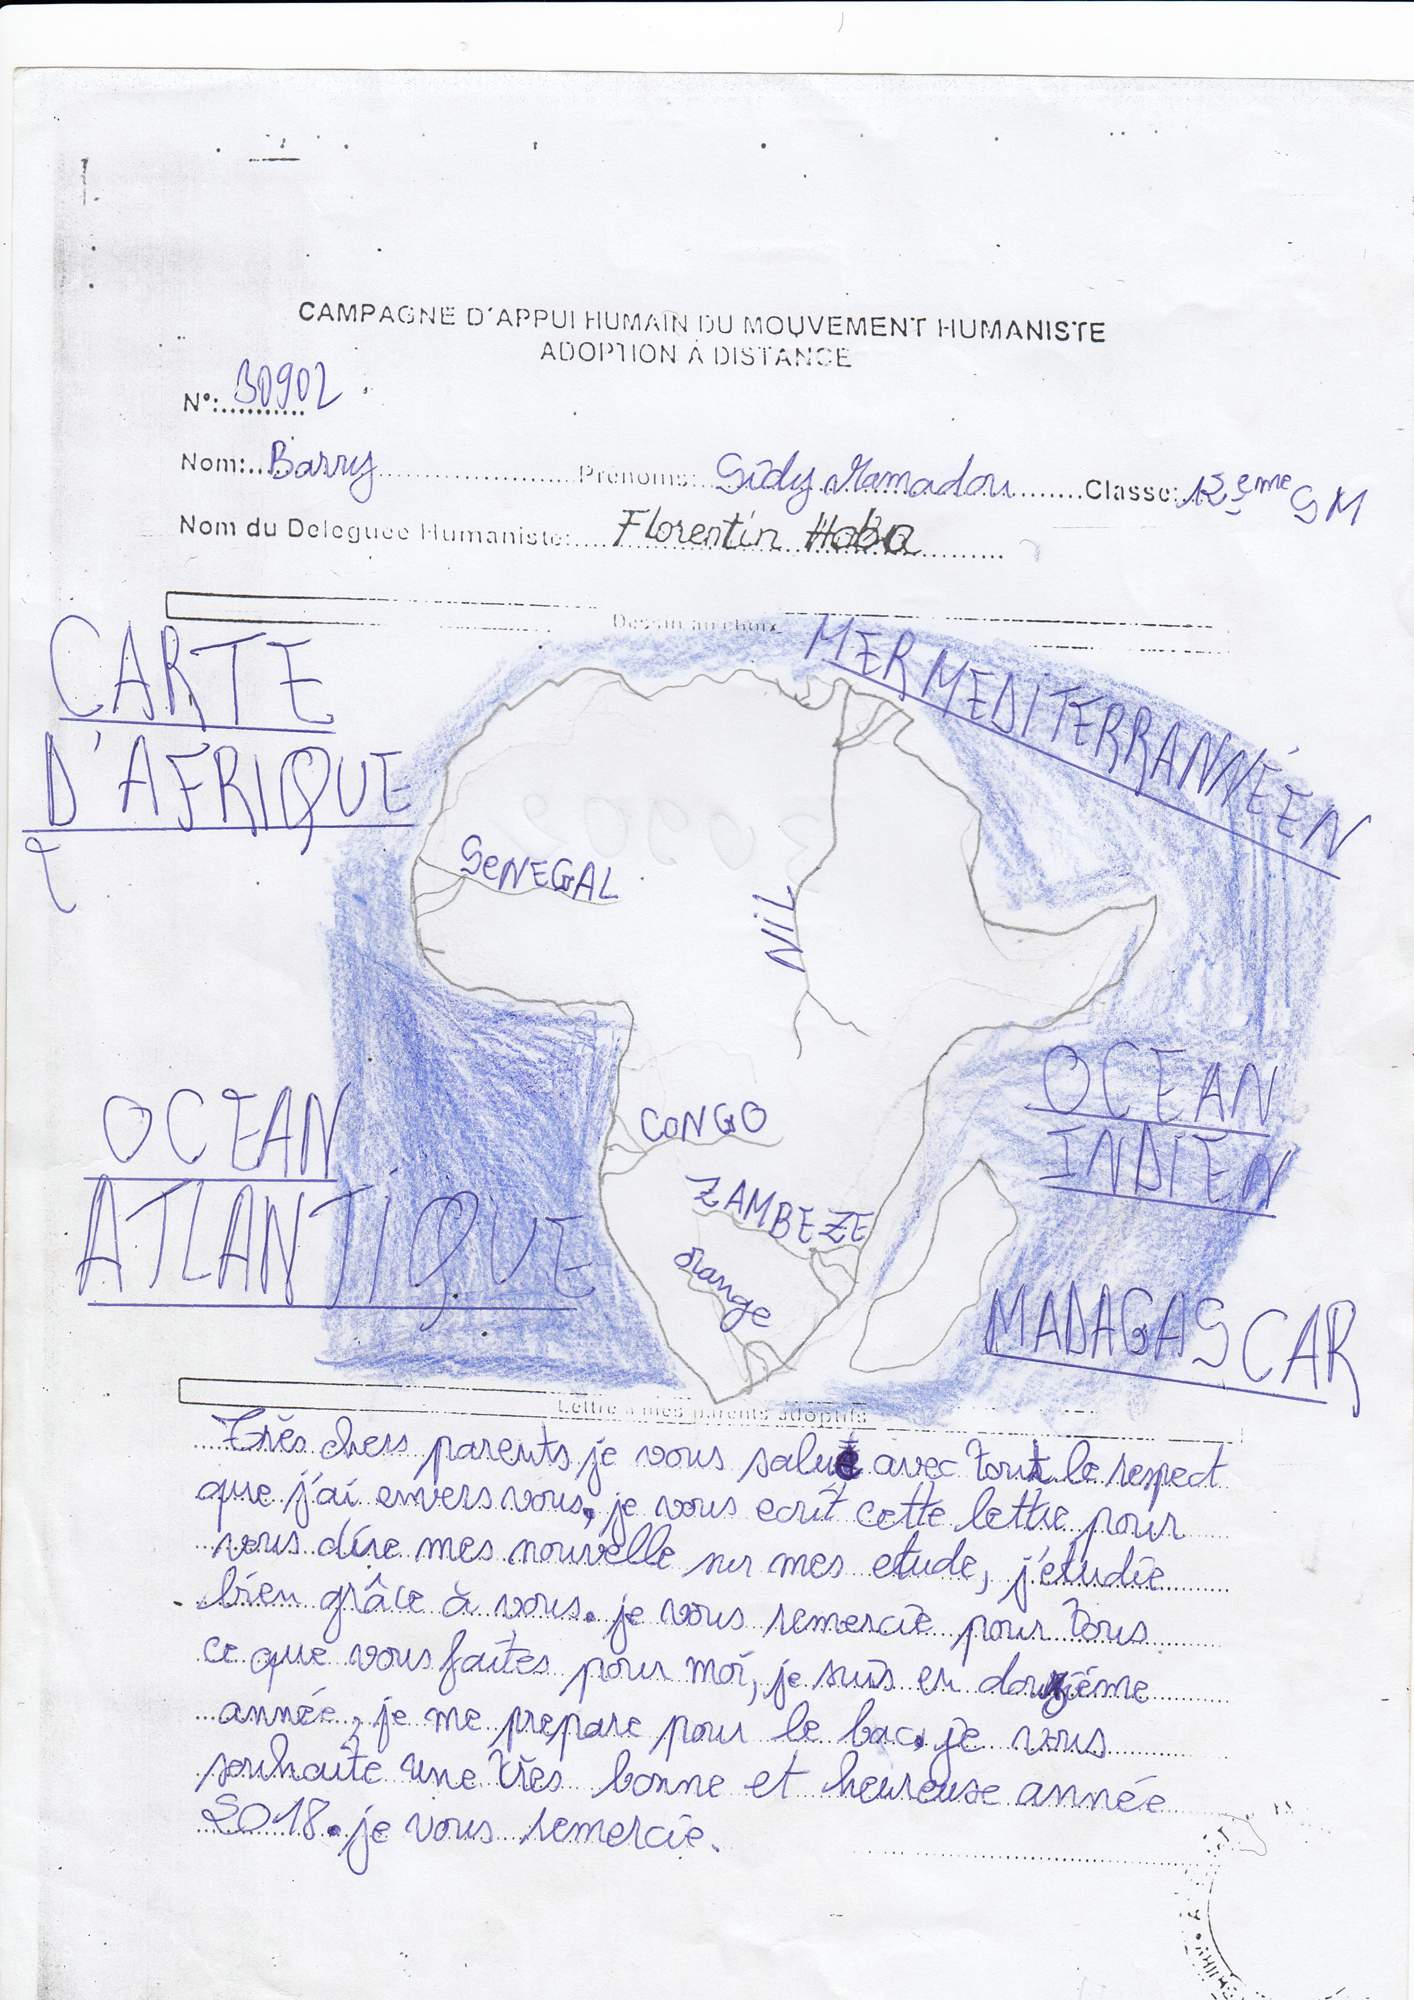 CAMPAGNE D'APPUI HUMAIN DU MOUVEMENT HUMANISTE
ADOPTION À DISTANCE
N°:........... 30902
Nom:... Barry Prénoms: Sidy Mamadou Classe: 12ème SM
Nom du Deleguée Humaniste: Florentin Haba
Dessin au choix
CARTE
D'AFRIQUE
MER MEDITERRANNÉEN
SENEGAL
NIL
OCEAN
ATLANTIQUE
CONGO
OCEAN
INDIEN
ZAMBEZE
orange
MADAGASCAR
Lettre à mes parents adoptifs
Très chers parents je vous salue avec tout le respect
que j'ai envers vous, je vous ecrit cette lettre pour
vous dire mes nouvelle sur mes etude, j'étudie
bien grâce à vous. je vous remercie pour tous
ce que vous faites pour moi, je suis en douzième
année, je me prepare pour le bac. je vous
souhaite une très bonne et heureuse année
2018. je vous remercie.